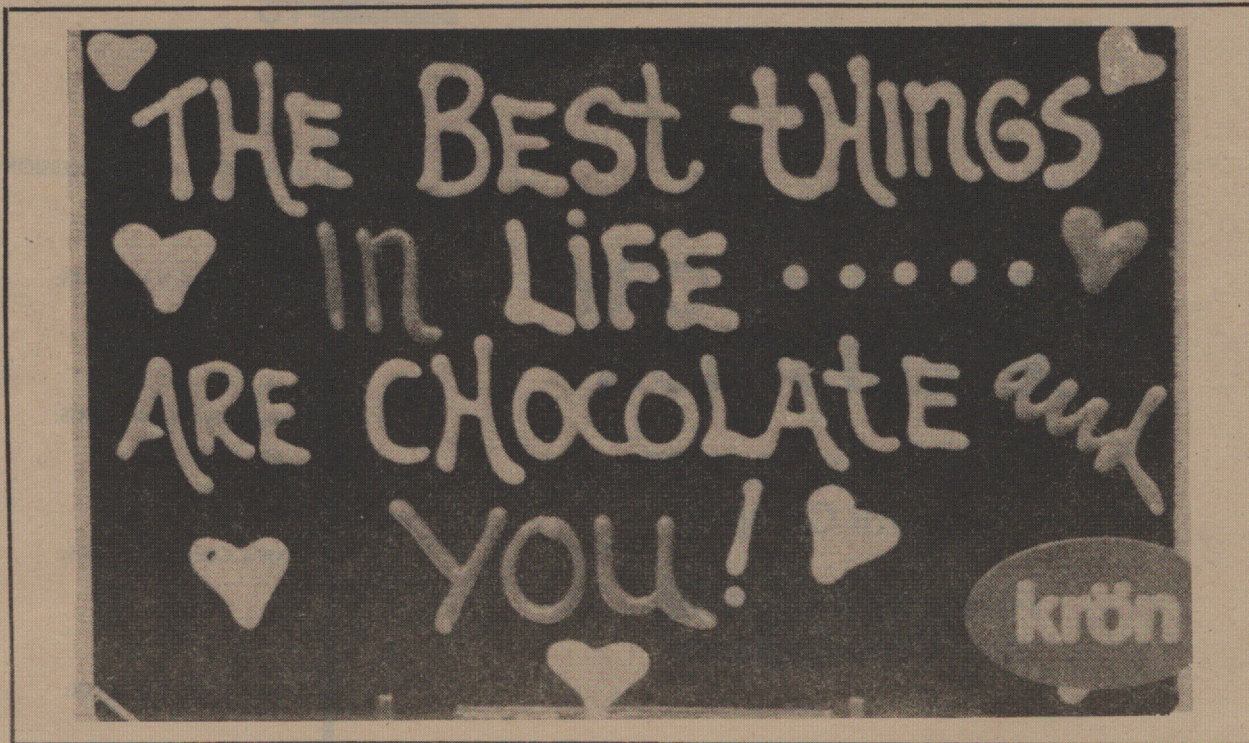 THE BESt tHINGS
In LiFE .....
ARE CHOCOLAtE and
YOU!
krön